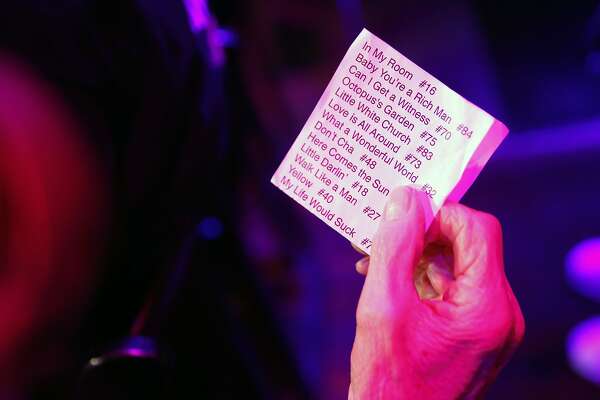 In My Room #16
Baby You're a Rich Man #84
Can I Get a Witness #70
Octopus's Garden #75
Little White Church #83
Love Is All Around #73
What a Wonderful World #32
Don't Cha #48
Here Comes the Sun
Little Darlin' #18
Walk Like a Man #27
Yellow #40
My Life Would Suck